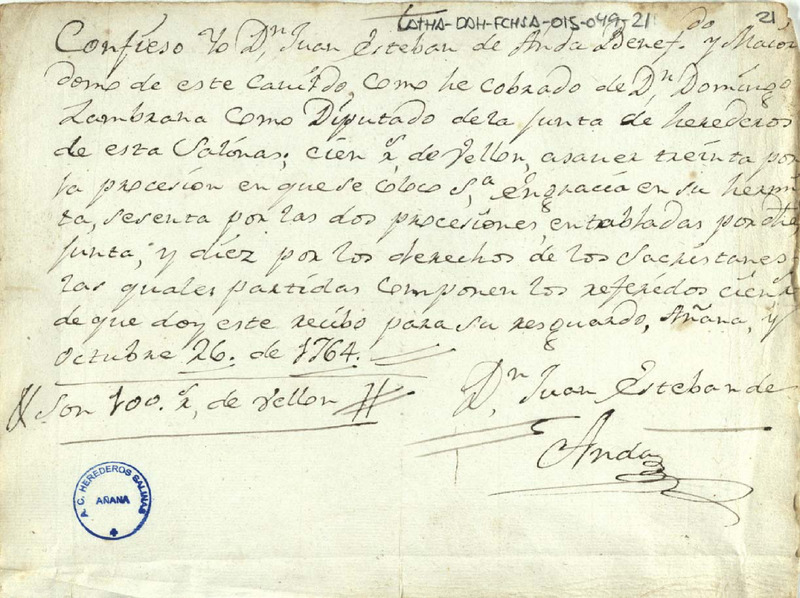 ATHA-DAH-FCHSA-015-049-21
21
Confieso Yo Dn Juan Esteban de Anda Benefdo y Maior
domo de este Cavildo, como he cobrado de Dn Domingo
Zambrana como Diputado de la Junta de herederos
de esta Salinas, cien rs de Vellon, asaver treinta por
la procesion en que se coloco Sta engracia en su hermi
ta, sesenta por las dos procesiones entabladas por dha
Junta, y diez por los derechos de los Sacristanes
las quales partidas componen los referidos cien rs
de que doy este recibo para su resguardo, Añana, y
Octubre 26. de 1764.
Son 100. rs, de Vellon
Dn Juan Esteban de
Anda
A. C. HEREDEROS SALINAS
AÑANA